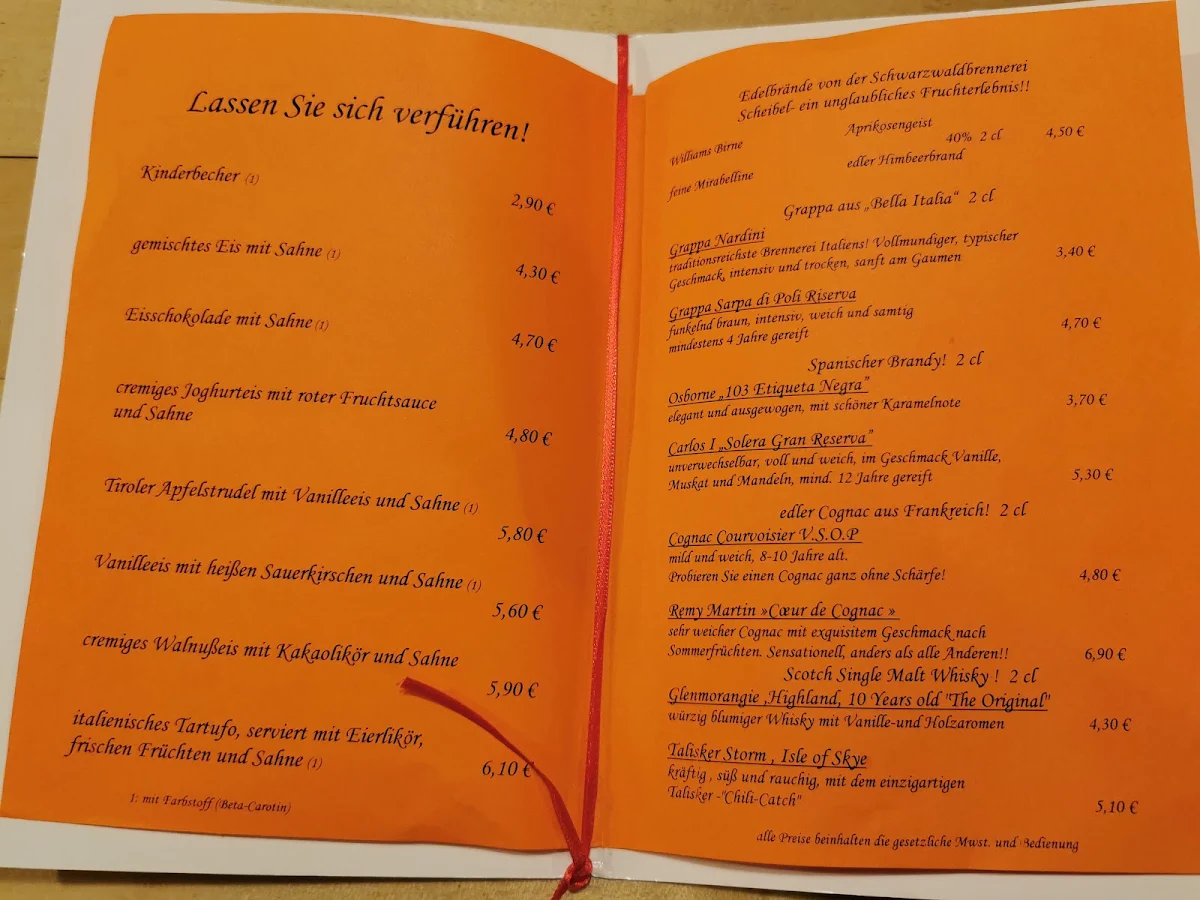 Lassen Sie sich verführen!
Kinderbecher (1)
2,90 €
gemischtes Eis mit Sahne (1)
4,30 €
Eisschokolade mit Sahne (1)
4,70 €
cremiges Joghurteis mit roter Fruchtsauce
und Sahne
4,80 €
Tiroler Apfelstrudel mit Vanilleeis und Sahne (1)
5,80 €
Vanilleeis mit heißen Sauerkirschen und Sahne (1)
5,60 €
cremiges Walnußeis mit Kakaolikör und Sahne
5,90 €
italienisches Tartufo, serviert mit Eierlikör,
frischen Früchten und Sahne (1)
6,10 €
1: mit Farbstoff (Beta-Carotin)
Edelbrände von der Schwarzwaldbrennerei
Scheibel- ein unglaubliches Fruchterlebnis!!
Williams Birne Aprikosengeist
40% 2 cl 4,50 €
feine Mirabelline edler Himbeerbrand
Grappa aus „Bella Italia“ 2 cl
Grappa Nardini
traditionsreichste Brennerei Italiens! Vollmundiger, typischer
Geschmack, intensiv und trocken, sanft am Gaumen 3,40 €
Grappa Sarpa di Poli Riserva
funkelnd braun, intensiv, weich und samtig
mindestens 4 Jahre gereift 4,70 €
Spanischer Brandy! 2 cl
Osborne „103 Etiqueta Negra”
elegant und ausgewogen, mit schöner Karamelnote 3,70 €
Carlos I „Solera Gran Reserva”
unverwechselbar, voll und weich, im Geschmack Vanille,
Muskat und Mandeln, mind. 12 Jahre gereift 5,30 €
edler Cognac aus Frankreich! 2 cl
Cognac Courvoisier V.S.O.P
mild und weich, 8-10 Jahre alt.
Probieren Sie einen Cognac ganz ohne Schärfe! 4,80 €
Remy Martin »Cœur de Cognac »
sehr weicher Cognac mit exquisitem Geschmack nach
Sommerfrüchten. Sensationell, anders als alle Anderen!! 6,90 €
Scotch Single Malt Whisky ! 2 cl
Glenmorangie ,Highland, 10 Years old "The Original"
würzig blumiger Whisky mit Vanille-und Holzaromen 4,30 €
Talisker Storm , Isle of Skye
kräftig , süß und rauchig, mit dem einzigartigen
Talisker -"Chili-Catch" 5,10 €
alle Preise beinhalten die gesetzliche Mwst. und Bedienung